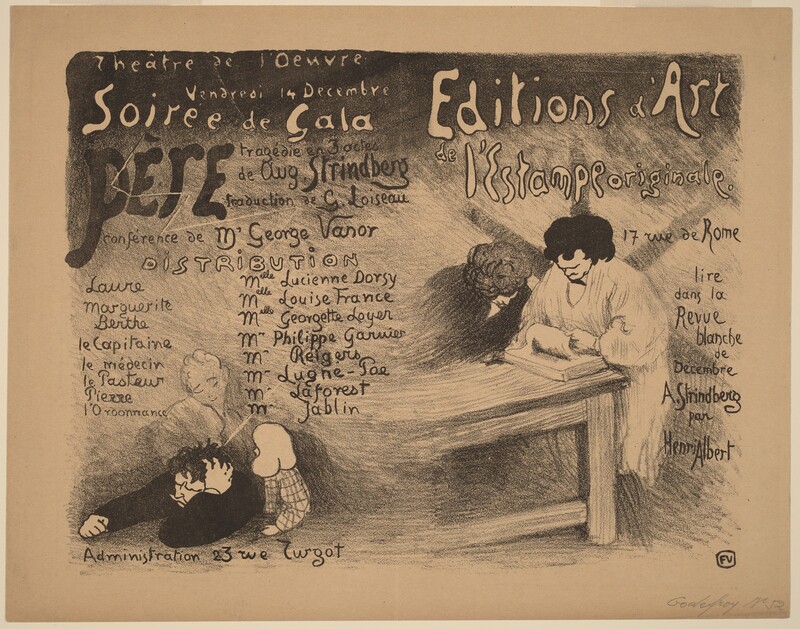 Theâtre de l'Oeuvre
Vendredi 14 Decembre
Soirée de Gala
PÈRE
tragédie en 3 actes
de Aug. Strindberg
traduction de G. Loiseau
conférence de Mr George Vanor
DISTRIBUTION
Laure Melle Lucienne Dorsy
Marguerite Melle Louise France
Berthe Melle Georgette Loyer
le Capitaine Mr Philippe Garnier
le médecin Mr Reigers
le Pasteur Mr Lugne-Poe
Pierre Mr Laforest
l'Ordonnance Mr Jablin
Administration 23 rue Turgot
Editions d'Art
de l'Estampe originale.
17 rue de Rome
lire
dans la
Revue
blanche
de
Décembre
A. Strindberg
par
Henri Albert
FV
Godefroy No 52